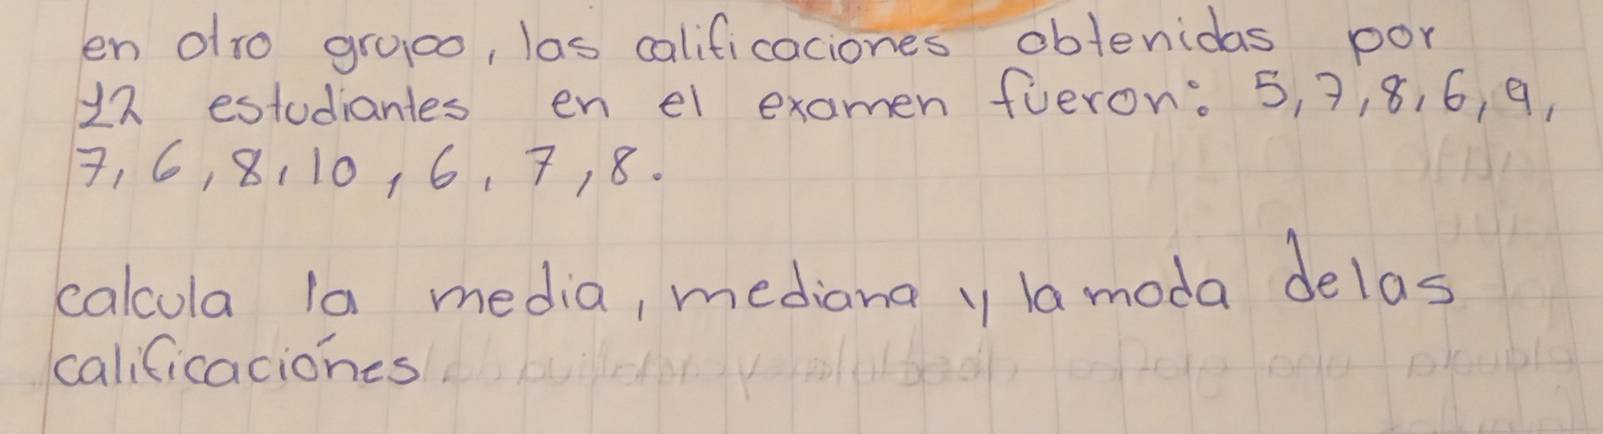 en otro grupo, las calificaciones obtenidas por
12 estudiantes en el examen fueron: 5,7,8,6,9,
7,6,8,10,6,7,8.
calcula la media, mediana y la moda de las
calificaciones